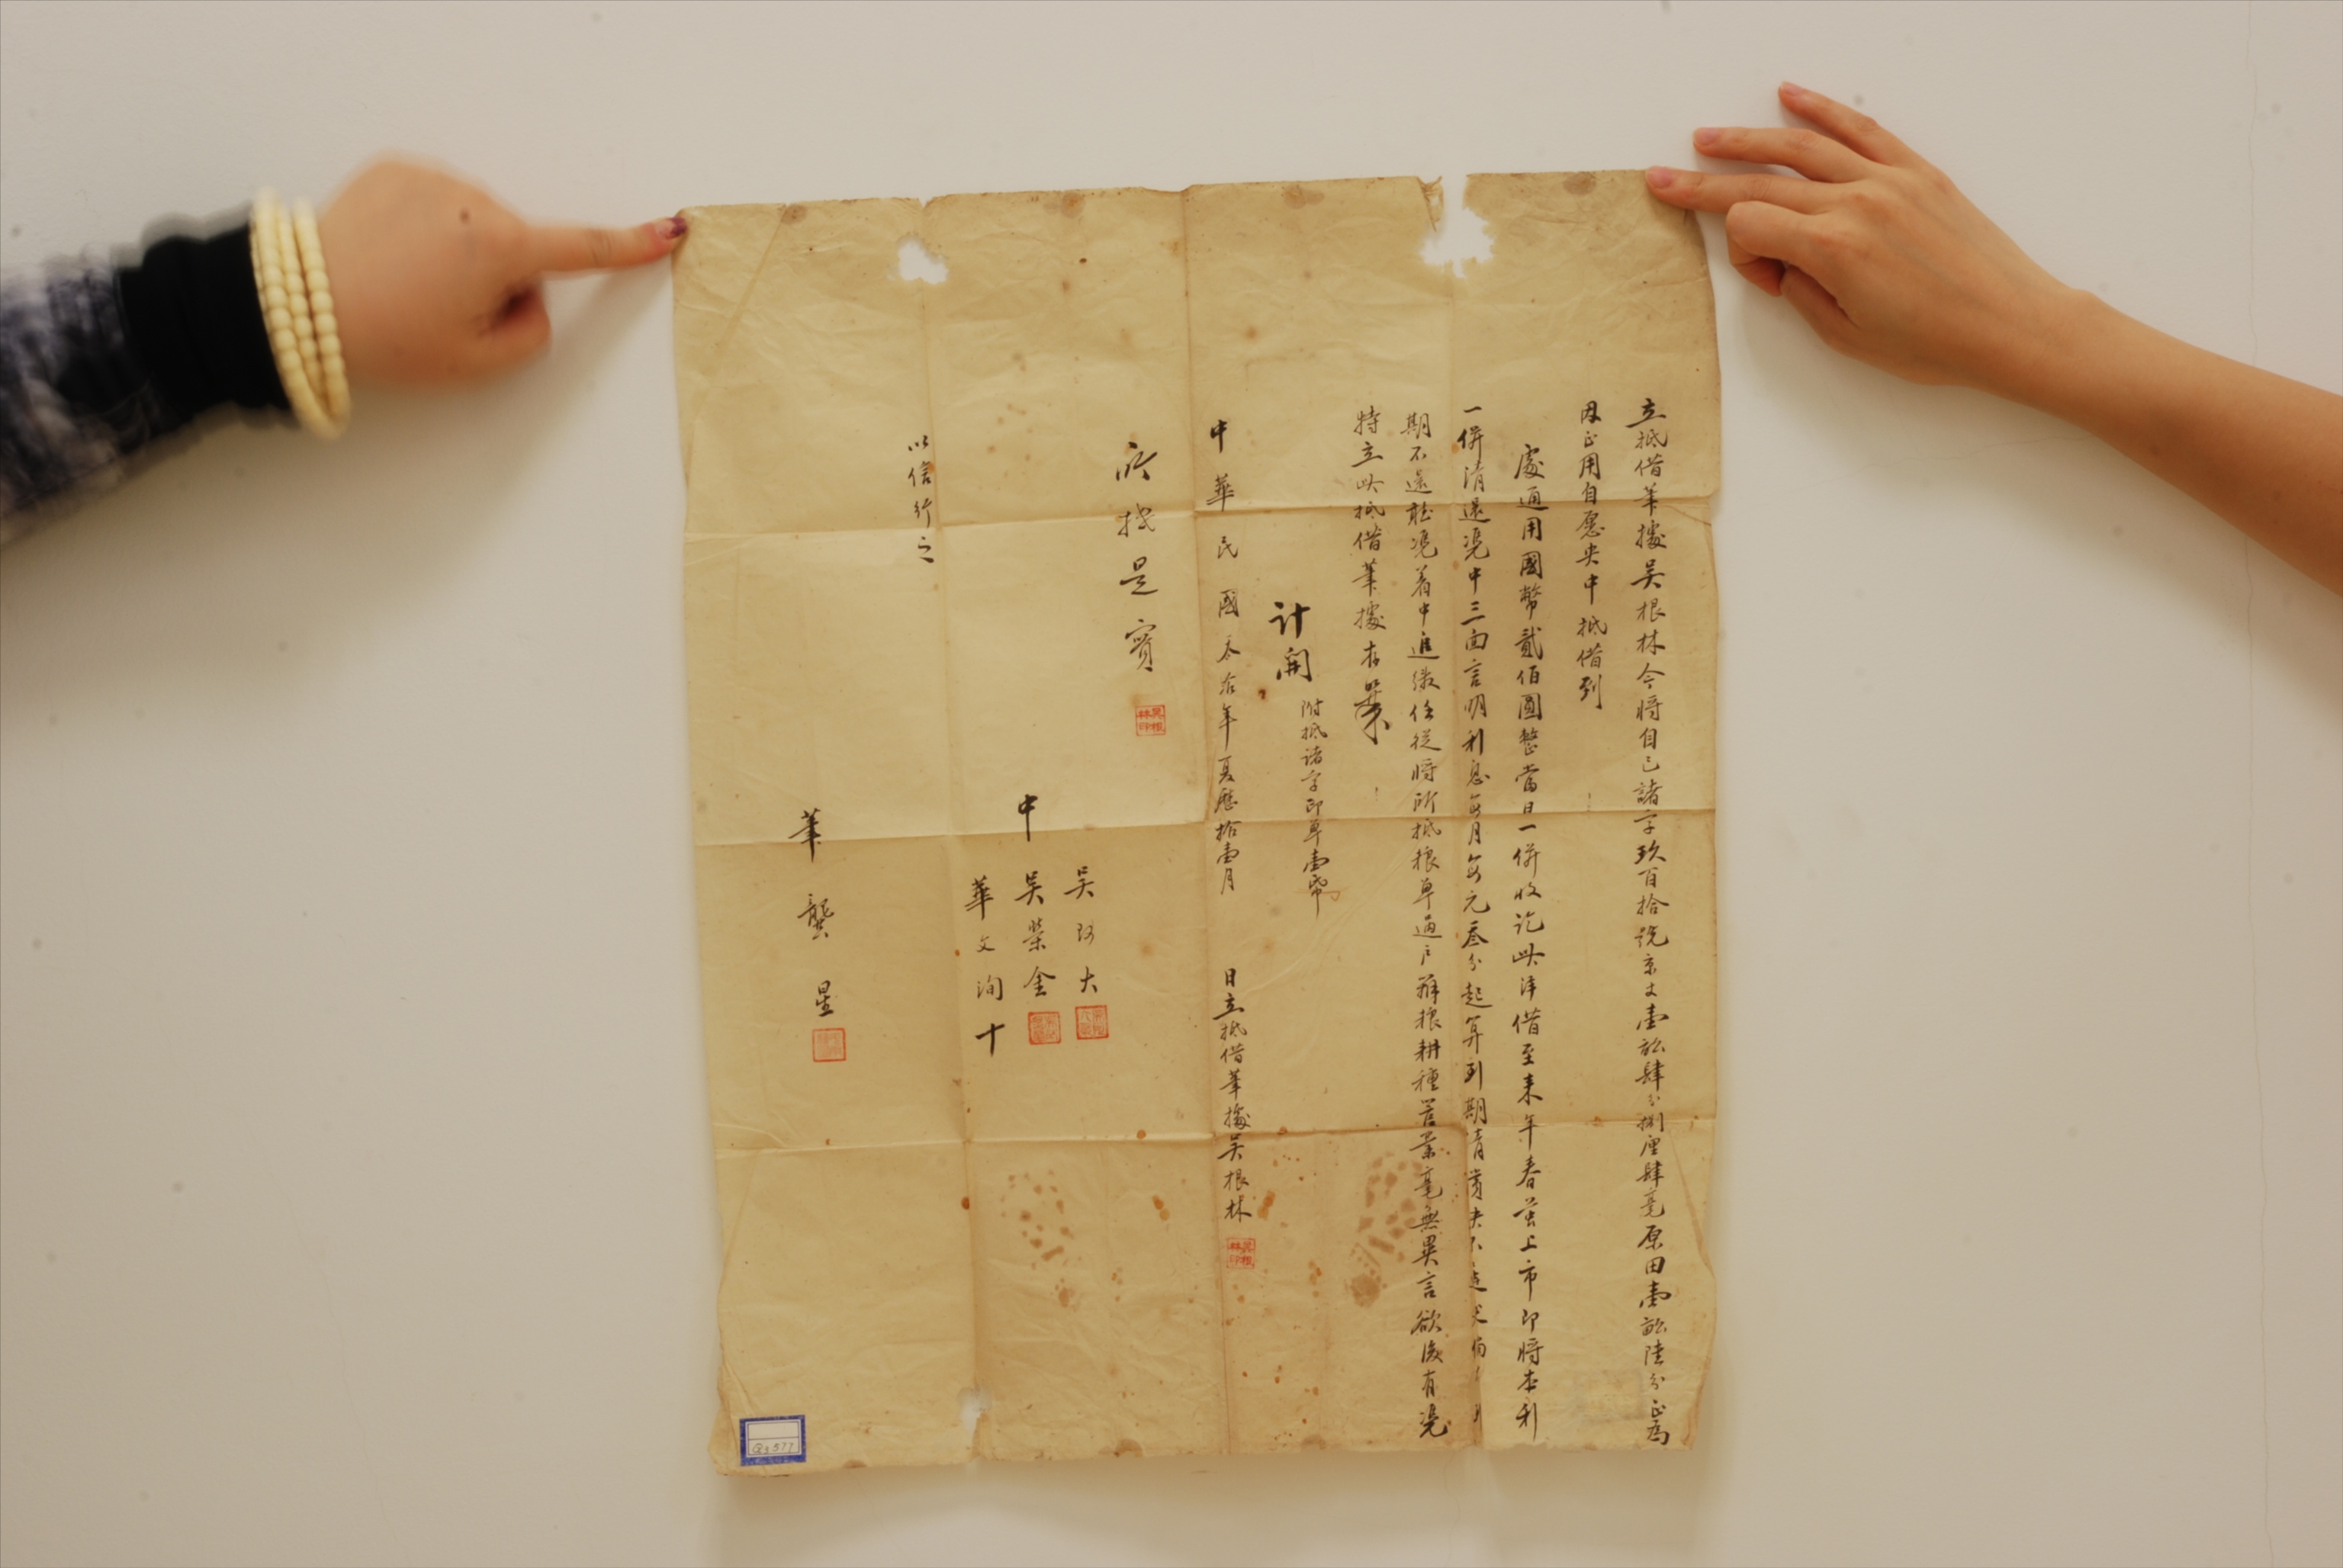 立抵借筆據吳根林今將自己諸字玖百拾號京丈壹畝肆分捌厘肆毫原田壹畝陸分正為
因正用自愿央中抵借到
處通用國幣貳佰圓整當日一併收訖此洋借至來年春蚕上市即將本利
一併清還凭中三面言明利息每月每元叁分起算到期清
期不還聽凭着中進繳任從將所抵粮單過户辦粮耕種管業毫無異言欲後有凭
特立此抵借筆據存照
計開 附抵諸字印單壹帋
中華民國年夏歷拾壹月 日立抵借筆據吳根林
所抵是實
吳根林印
吳阿大
中 吳榮金
華文洵 十
以信行之
筆 龔星
Q3577